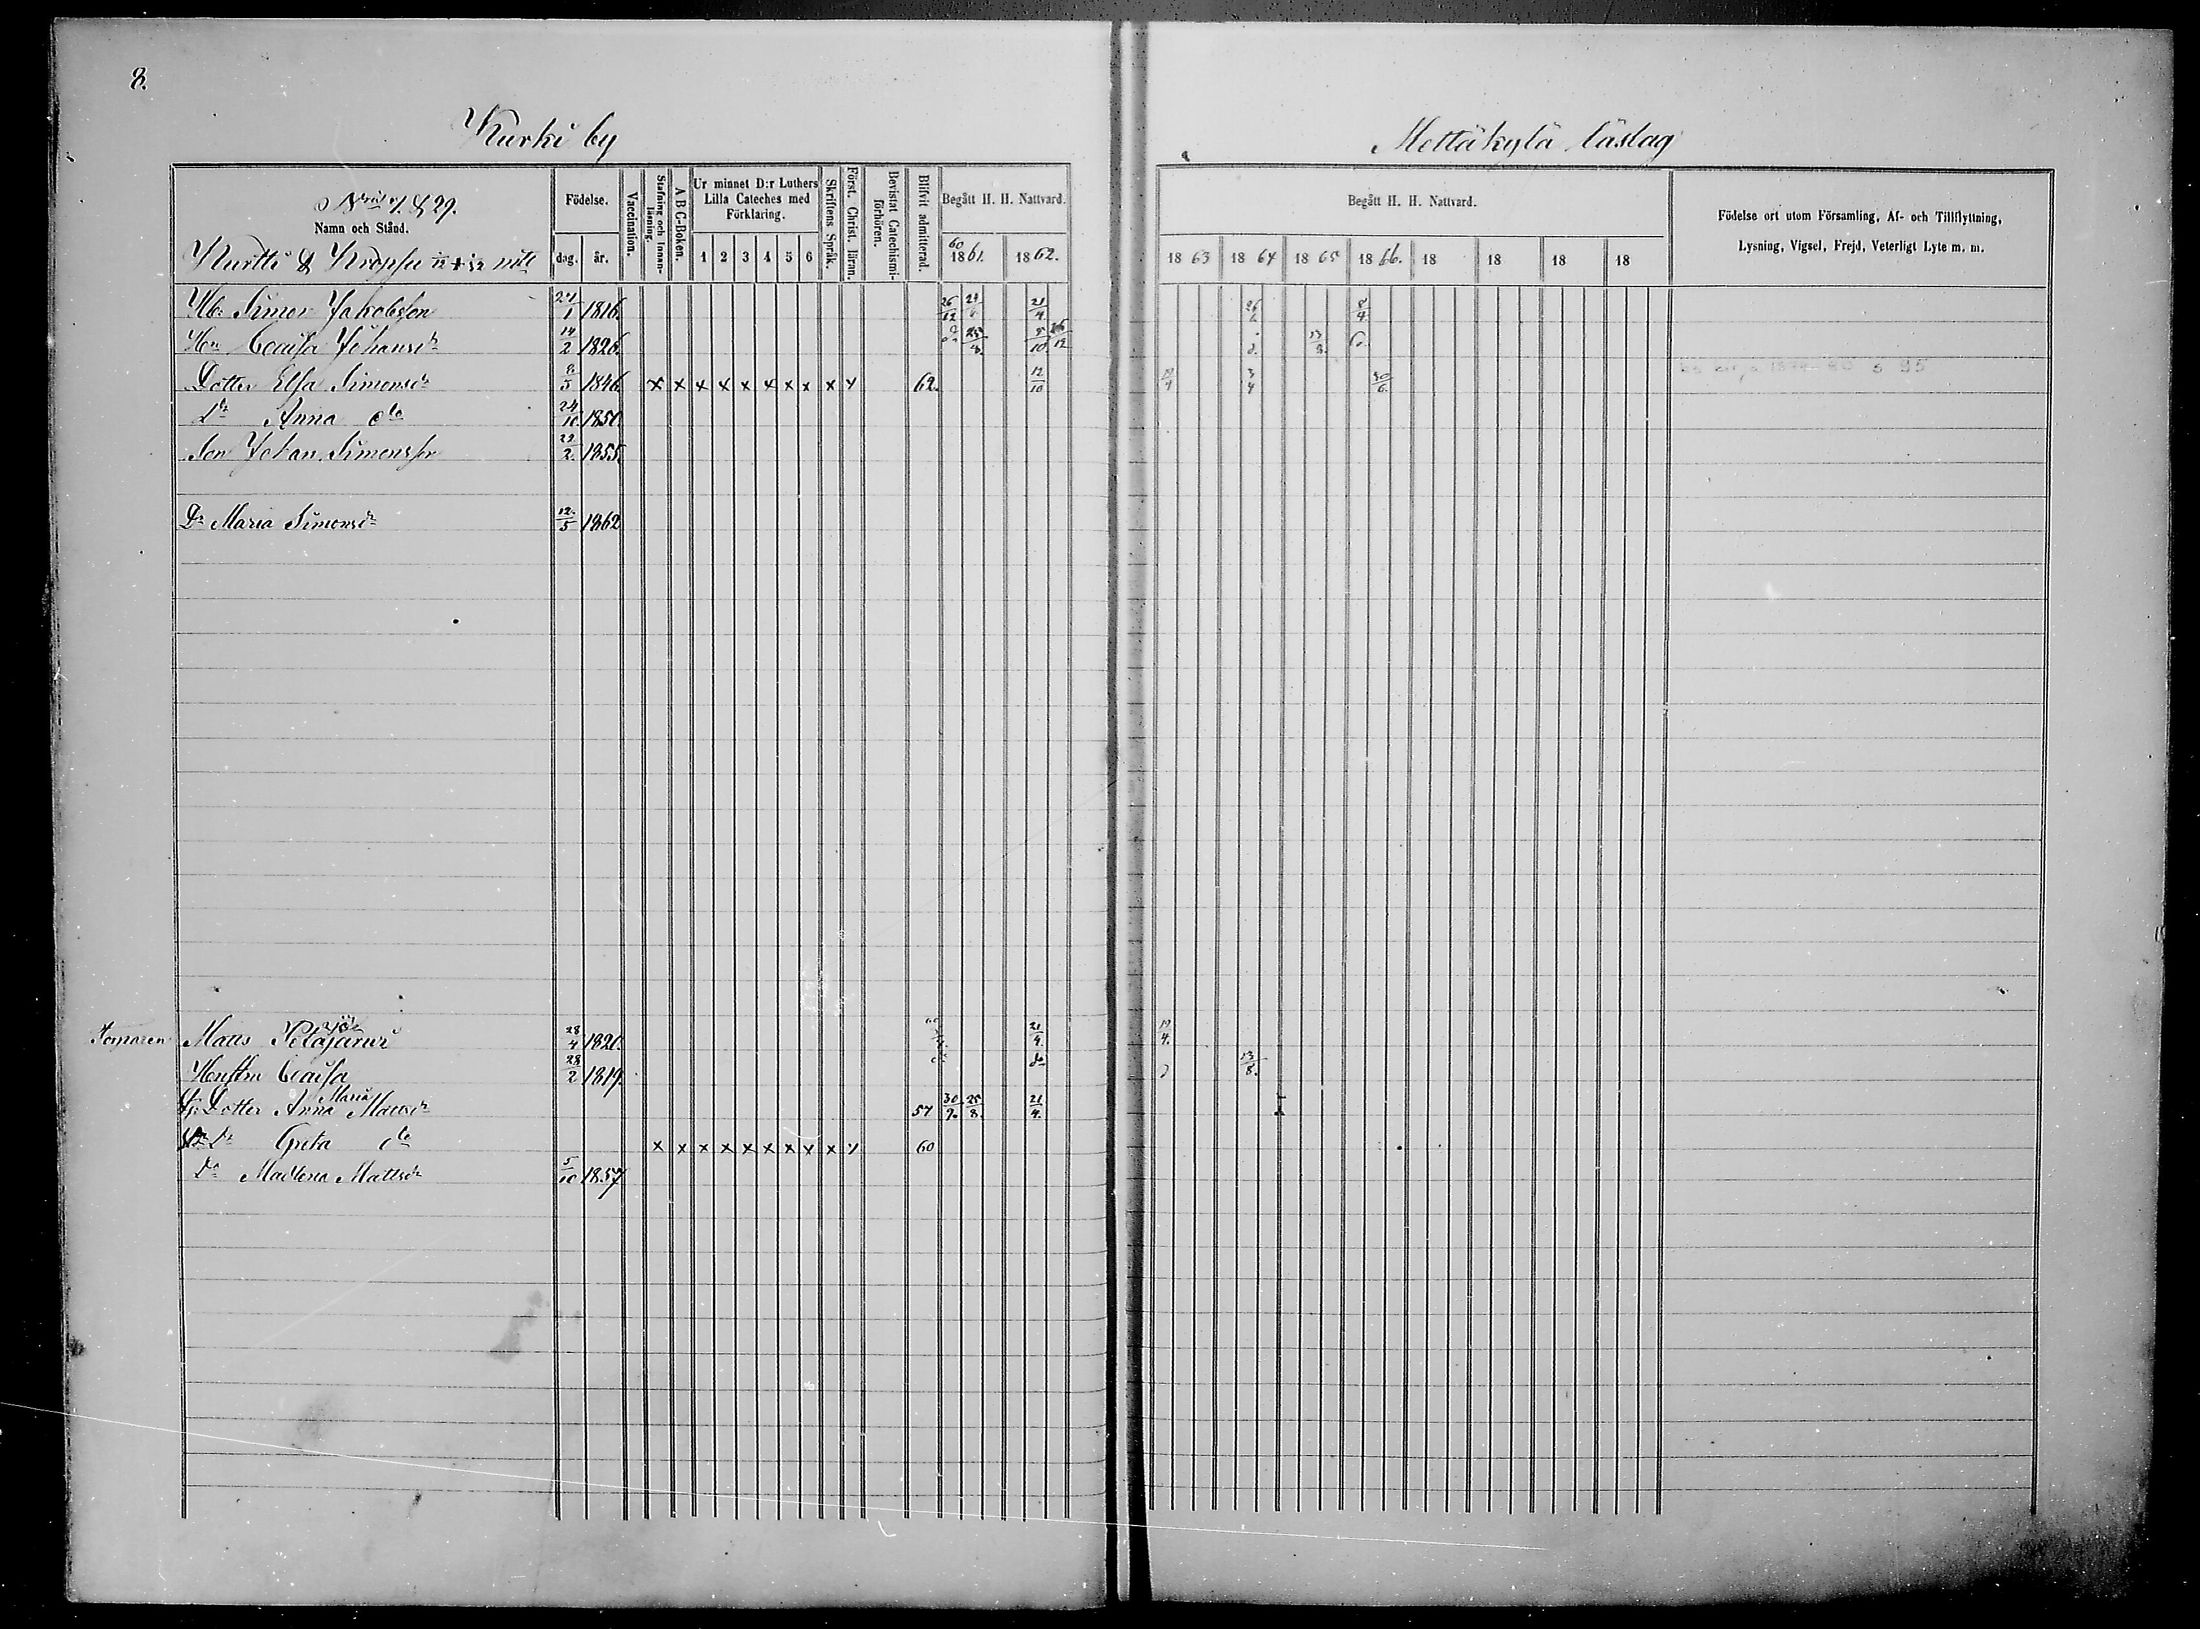 8.
Kurki by
Mettäkylä läslag
N:ris 7. & 29.
Namn och Stånd.
Födelse.
dag. år.
Vaccination.
Stafning och Innanläsning.
A B C-Boken.
Ur minnet D:r Luthers Lilla Cateches med Förklaring.
1 2 3 4 5 6
Skriftens Språk.
Först. Christ. läran.
Bevistat Catechismiförhören.
Blifvit admitterad.
Begått H. H. Nattvard.
60
1861. 1862.
Begått H. H. Nattvard.
1863 1864 1865 1866. 18 18 18 18
Födelse ort utom Församling, Af- och Tillflyttning,
Lysning, Vigsel, Frejd, Veterligt Lyte m. m.
Kurtti &
Hb. Simon Jakobsson 27/1 1816. 21/4 8/4
Hu Caisa Johansdr 14/2 1826. 5/10 26/12 13/8
Dotter Elsa Simonsdr 8/5 1846. x x x x x x x x x x 62. 12/10 3/4 30/6
Dr Anna do 24/10 1850.
Son Johan Simonsson 22/2. 1855.
Dr Maria Simonsdr 12/5 1862
Torparen Matts Petäjäjärvi 28/4 1820. 21/4. 19/4.
Hustru Caisa 28/2 1819. do 13/8.
Dotter Anna Maria Mattsdr 57 30/9. 25/8. 21/4.
Dr Greta do x x x x x x x x x x 60
Dr Madlena Mattsdr 5/10 1857